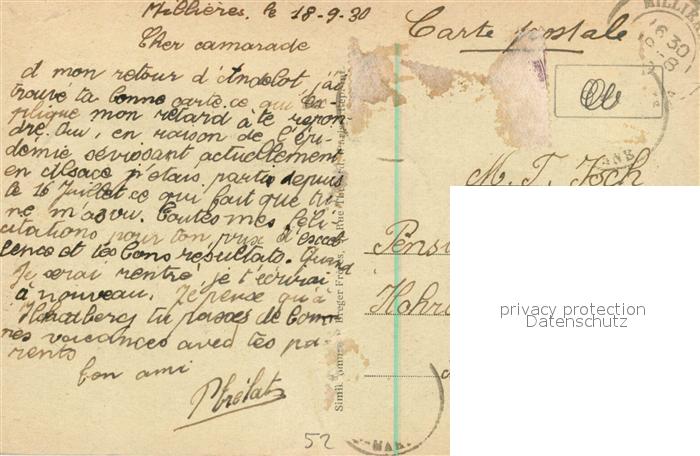 Millières, le 18-9-30
Cher camarade
A mon retour d'Andelot, j'ai
trouvé ta bonne carte, ce qui ex-
plique mon retard à te répon-
dre. Oui, en raison de l'épi-
démie sévissant actuellement
en Alsace j'étais parti depuis
le 16 Juillet ce qui fait que tu
ne m'as vu. Toutes mes féli-
citations pour ton prix d'excel-
lence et tes bons résultats. Quand
Je serai rentré, je t'écrirai
à nouveau. Je pense qu'à
tu passes de bon-
nes vacances avec tes pa-
rents
Ton ami
Carte postale
M. T.
Pensi
Hohr
52
privacy protection
Datenschutz